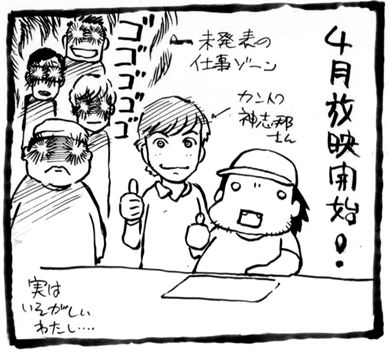 4月放映開始!
カントク
神志那
さん
未発表の
仕事ゾーン
ゴゴゴゴゴ
実は
いそがしい
わたし‥‥